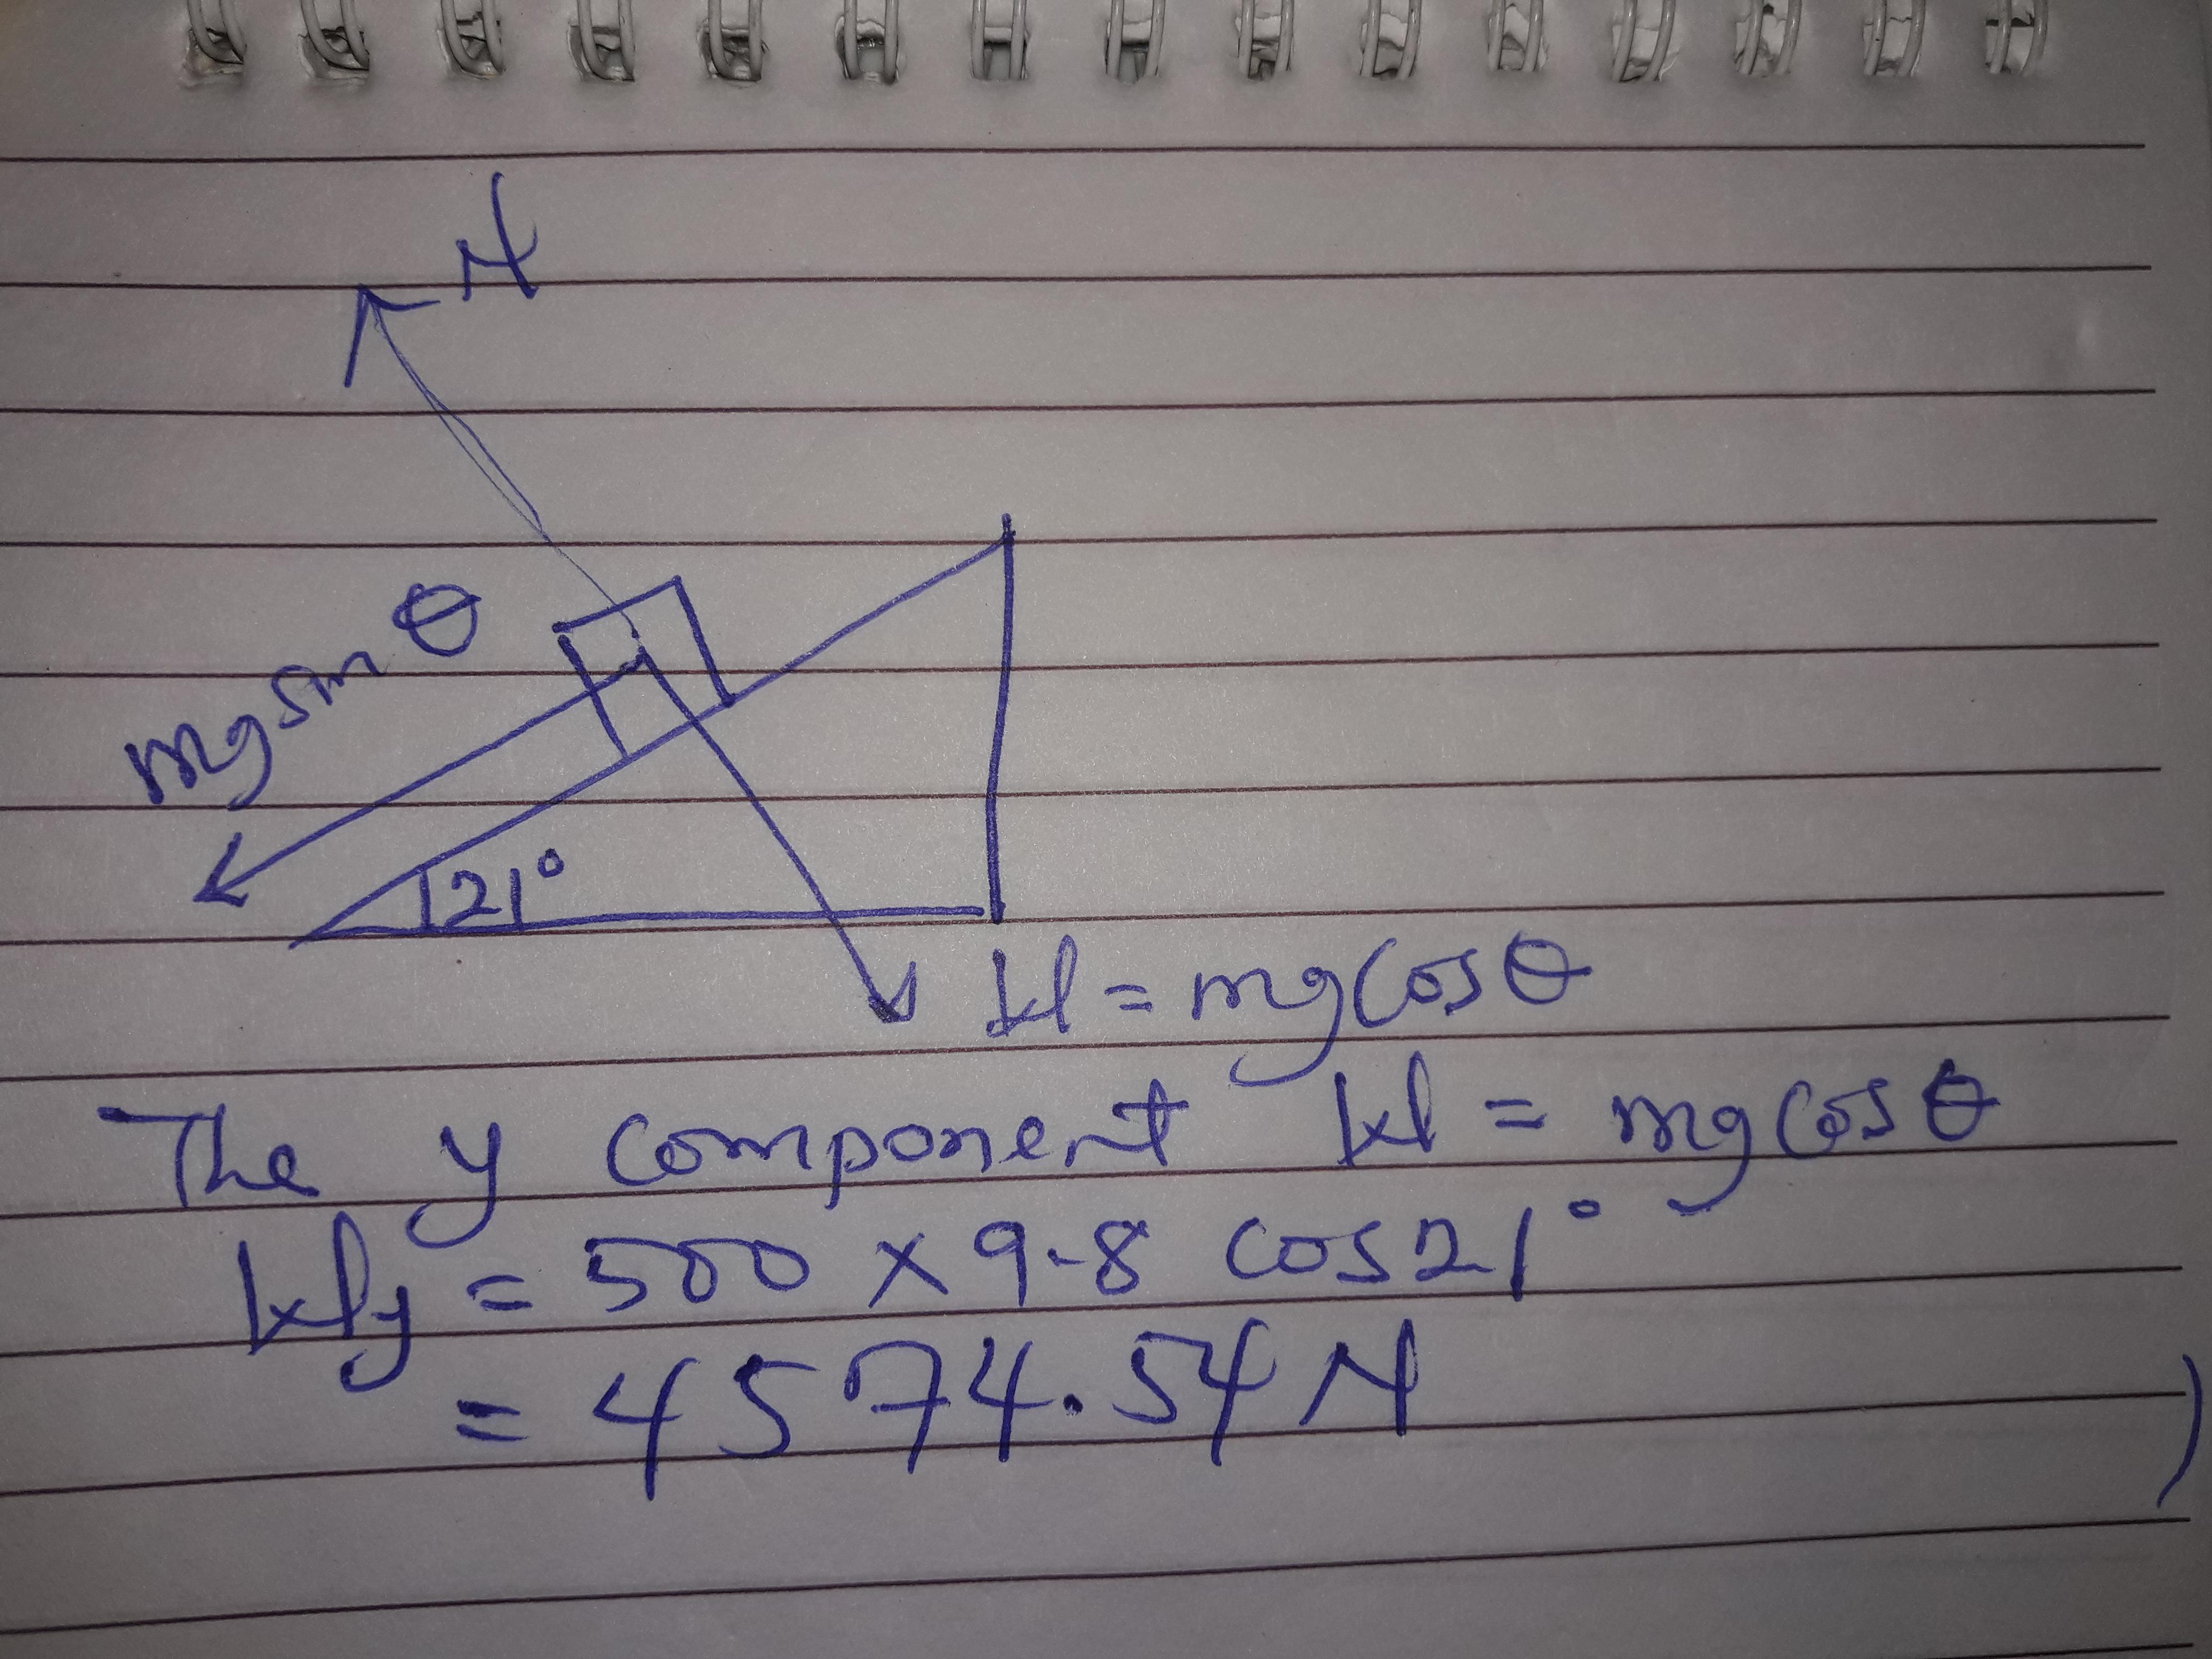 N
mg sin θ
21°
W = mg cos θ
The y component W = mg cos θ
Wy = 500 × 9.8 cos 21°
= 4574.54 N